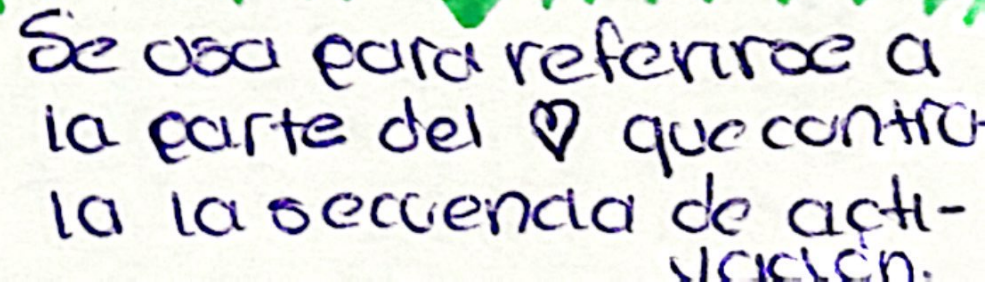 Se usa para referirse a
la parte del ♡ que contro
la la secuencia de acti-
vación.